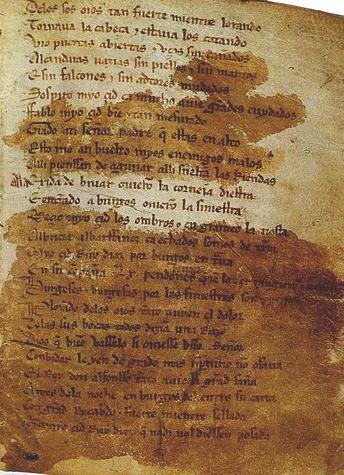 Delos sos oios tan fuerte mientre lorando
Tornaua la cabeça & estaua los catando
Vio puertas abiertas & vços sin cañados
Alcandaras uazias sin pielles & sin mantos
E sin falcones & sin adtores mudados
Sospiro myo çid ca mucho auie grandes cuydados
Fablo myo çid bien & tan mesurado
Grado ati señor padre que estas en alto
Esto me an buelto myos enemigos malos
Alli pienssan de aguijar alli sueltan las riendas
Ala exida de biuar ouieron la corneia diestra
E entrando a burgos ouieron la siniestra
Meçio myo çid los ombros & en grameo la tiesta
Albriçia albarffanez ca echados somos de tierra
Myo çid Ruy diaz por burgos en
En su conpaña .Lx. pendones
Burgeses & burgesas por las finiestras son
Plorando delos oios tanto auien el dolor
Delas sus bocas todos dizian una
Dios que buen vassalo si ouiesse buen Señor
Conbidar le yen de grado mas ninguno no osaua
El Rey don alfonsso tanto auie la grand saña
Antes dela noche en burgos del entro su carta
Con grand Recabdo & fuerte mientre sellada
Que a myo çid Ruy diaz que nadi nol diessen posada